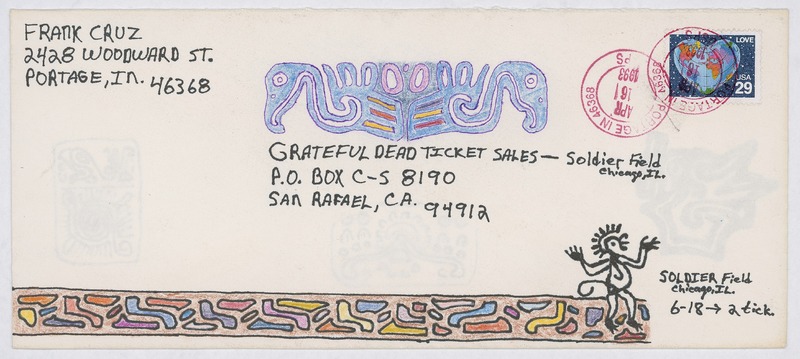 FRANK CRUZ
2428 WOODWARD ST.
PORTAGE, IN. 46368
LOVE
USA
29
PORTAGE IN 46368
APR
16
1993
PS
GRATEFUL DEAD TICKET SALES — Soldier Field
Chicago, IL.
P.O. BOX C-S 8190
SAN RAFAEL, CA. 94912
SOLDIER Field
Chicago, IL.
6-18 → 2 tick.